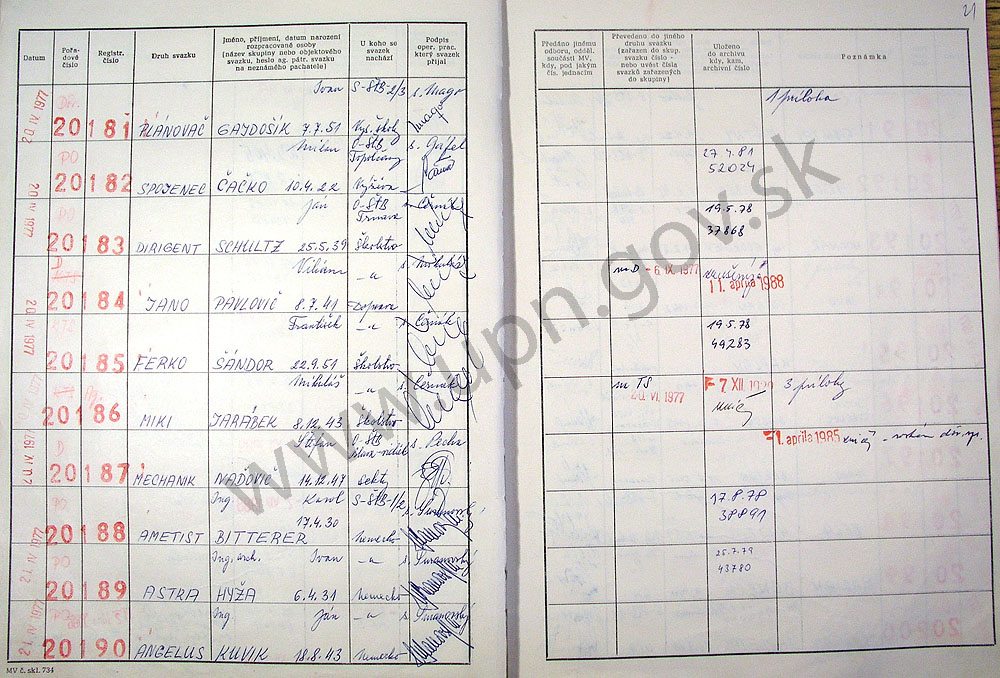 21
Datum
Pořa-
dové
číslo
Registr.
číslo
Druh svazku
Jméno, příjmení, datum narození
rozpracované osoby
(název skupiny nebo objektového
svazku, heslo ag. pátr. svazku
na neznámého pachatele)
U koho se
svazek
nachází
Podpis
oper. prac.
který svazek
přijal
Předáno jinému
odboru, odděl.
součásti MV,
kdy, pod jakým
čís. jednacím
Převedeno do jiného
druhu svazku
(zařazen do skup.
svazku číslo -
nebo uvést čísla
svazků zařazených
do skupiny)
Uloženo
do archivu
kdy, kam,
archivní číslo
Poznámka
Ivan S-ŠtB-2/3 s. Mago 1 príloha
20 IV 1977 20181 PLÁNOVAČ GAYDOŠÍK 7.7.51 Vys. školy
Milan O-ŠtB
PO Topolcany 27.4.81
20182 SPOJENEC ČAČKO 10.4.22 Výživa 52024
Ján O-ŠtB
20 IV 1977 PO Trnava 19.5.78
20183 DIRIGENT SCHULTZ 25.5.39 Školstvo 37868
Viliam -"- D - 6. IX. 1977
20184 JANO PAVLOVIČ 8.7.41 Doprava 11. apríla 1988
20 IV 1977 František -"- Černík 19.5.78
20185 FERKO ŠÁNDOR 22.9.51 Školstvo 49283
Mikuláš -"- s. Černík TS 7 XII 3 prílohy
20186 MIKI JARÁBEK 8.12.43 Školstvo 20. VI. 1977
Štefan O-ŠtB s. Becha -1. apríla 1985
20. IV. 1977 D.
20187 MECHANIK NAĎOVIČ 14.12.47 sekty
Ing. Karol S-ŠtB-1/2 s. Suranovský 17.8.78
PO 17.4.30 38891
21. IV 1977 20188 AMETIST BITTERER nemecko
Ing. arch. Ivan -"- s. Suranovský 25.7.79
PO 43780
21. IV 1977 20189 ASTRA HYŽA 6.4.31 nemecko
Ing Ján -"- s. Suranovský
21. IV 1977 20190 ANGELUS KUVIK 18.8.43 nemecko
MV č. skl. 734
www.upn.gov.sk